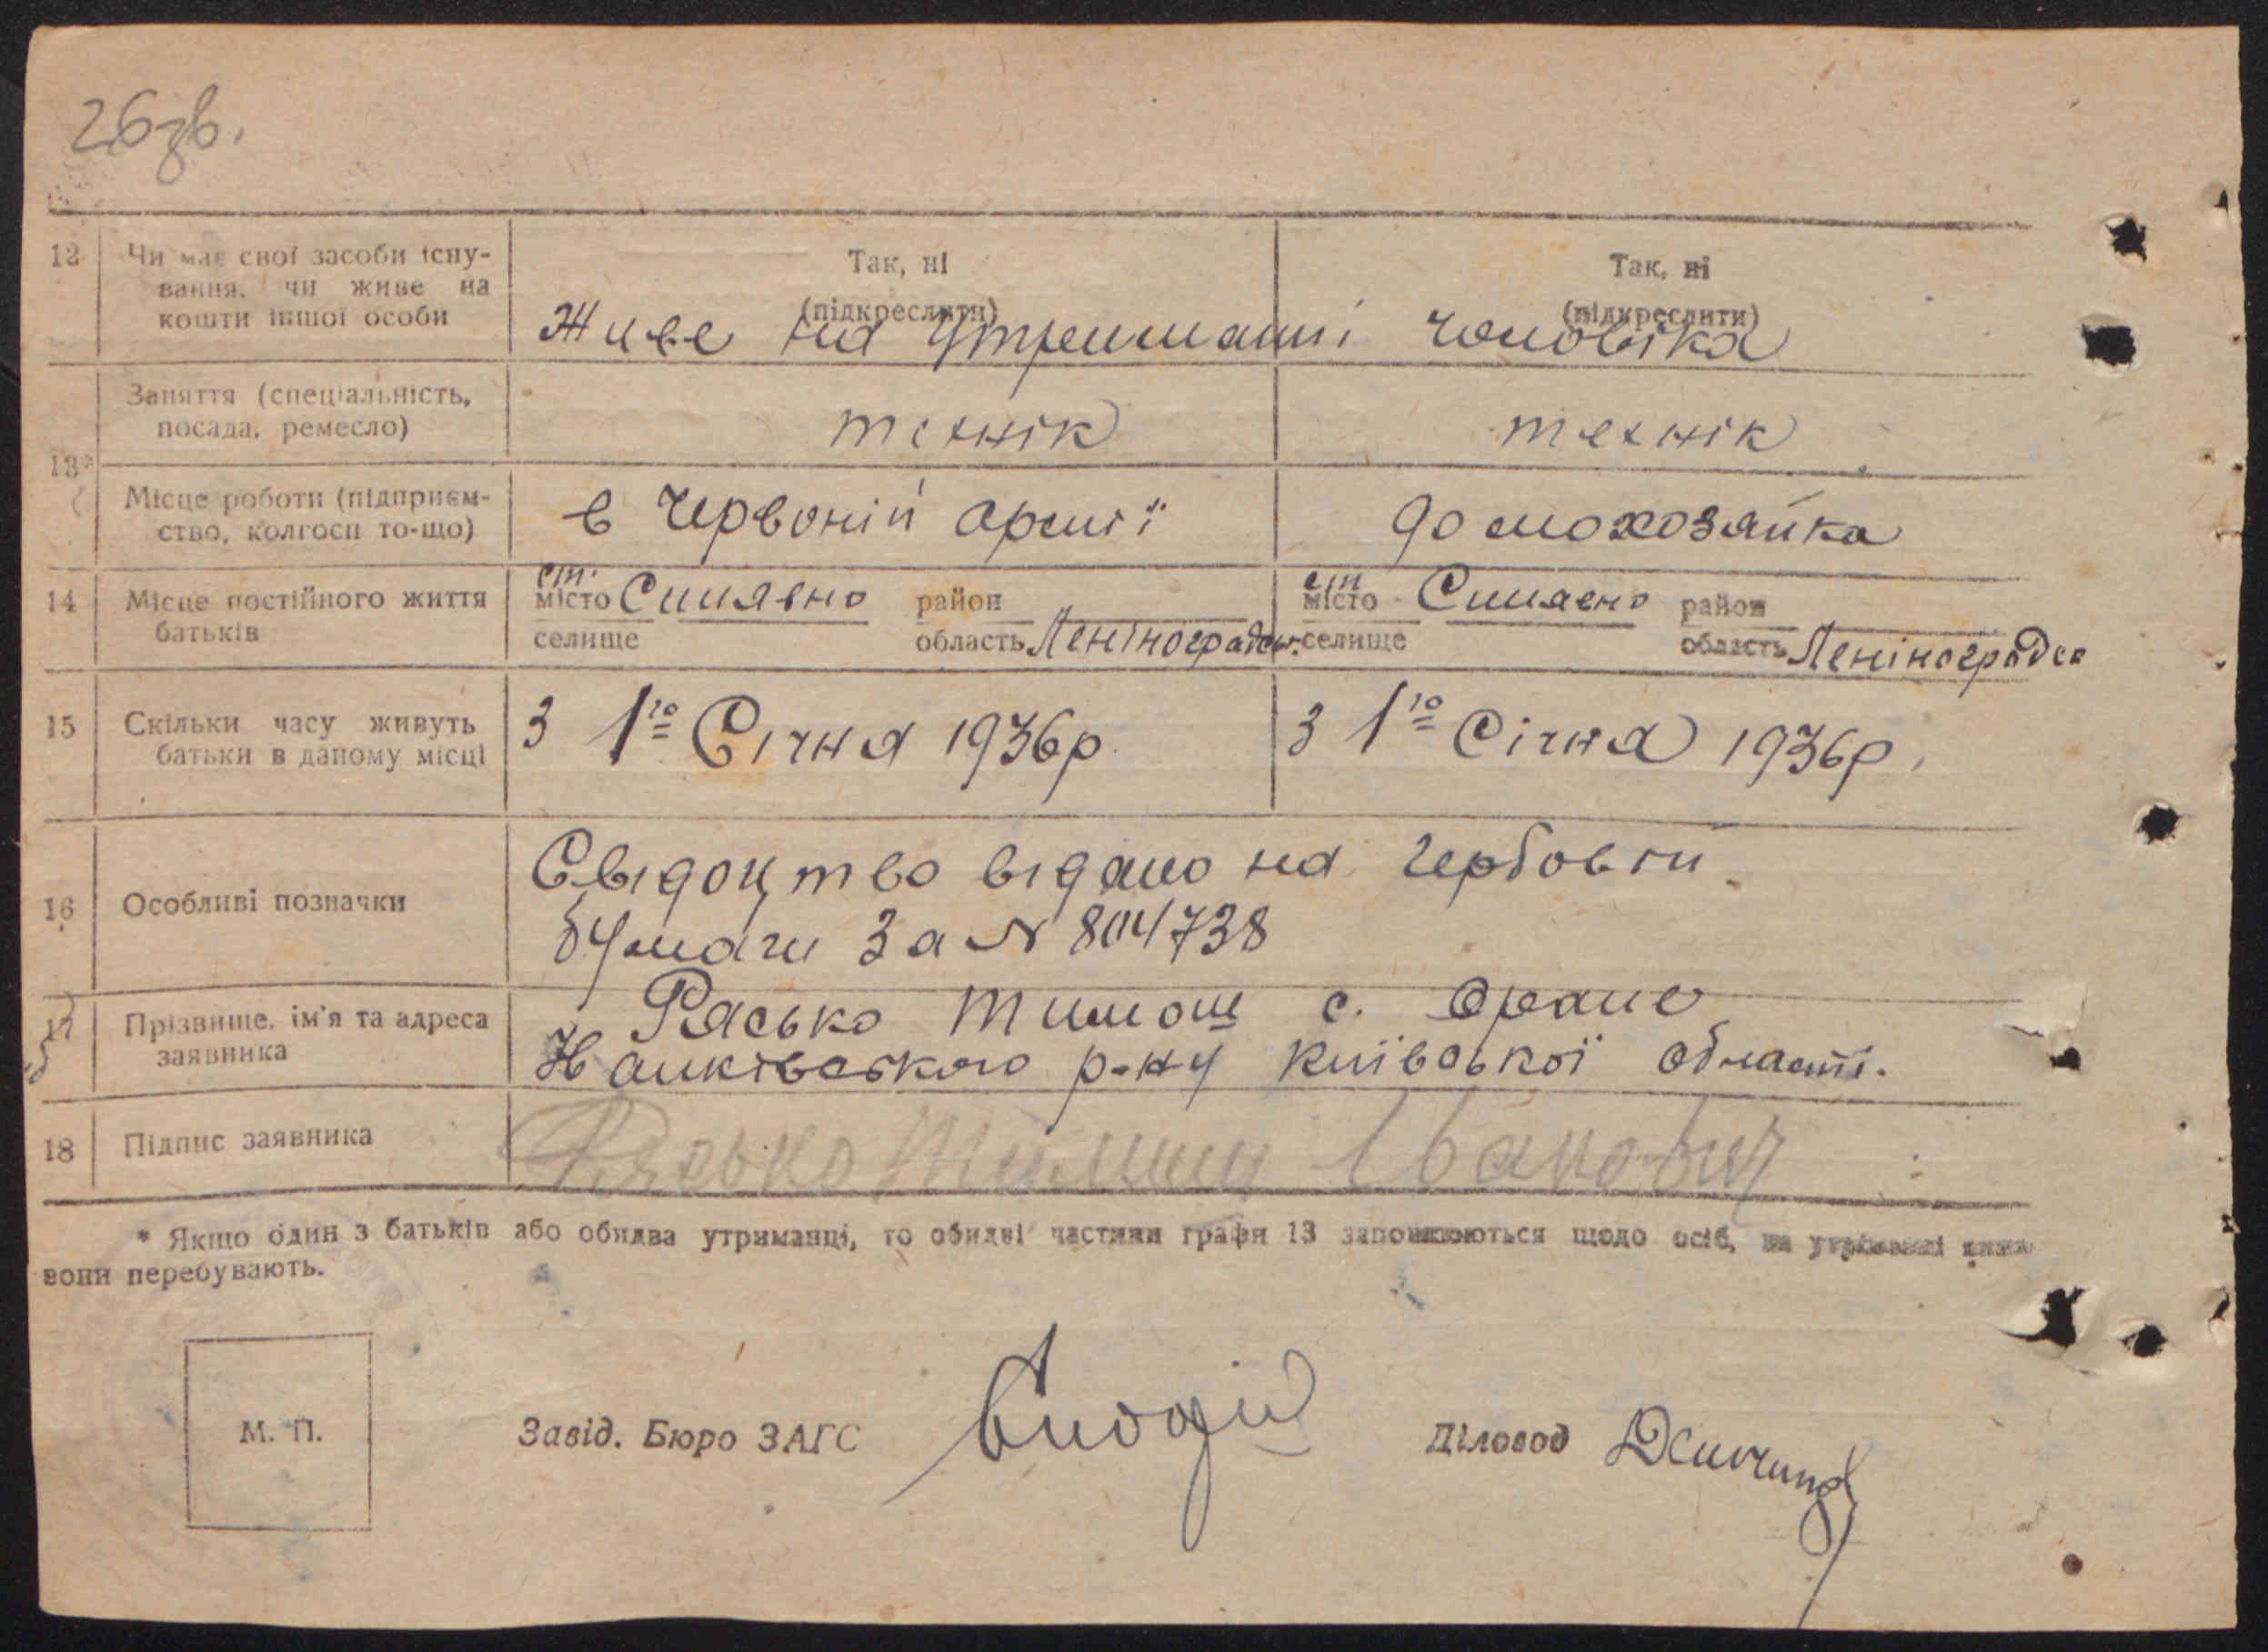 26зв.
12 Чи має свої засоби існу-
вання, чи живе на
кошти іншої особи
Так, ні
(підкреслити)
Так, ні
(підкреслити)
Живе на утриманні чоловіка
13* Заняття (спеціальність,
посада, ремесло)
технік
технік
Місце роботи (підприєм-
ство, колгосп то-що)
в Червоній армії
домохозяйка
14 Місце постійного життя
батьків
ст.
місто Синявно район
селище область Леніноградськ.
ст
місто Синявно район
селище область Леніноградск
15 Скільки часу живуть
батьки в даному місці
З 1го Січня 1936р.
З 1го Січня 1936р.
16 Особливі позначки
Свідоцтво відано на гербовій
бумаги За № 804738
17 Прізвище, ім'я та адреса
заявника
Рясько Тимош с. Оране
Іванківського р-ну Київської області.
18 Підпис заявника
Рясько Іванович
* Якщо один з батьків або обидва утриманці, то обидві частини графи 13 заповнюються щодо осіб, на утриманні яких
вони перебувають.
М. П.
Завід. Бюро ЗАГС
Діловод